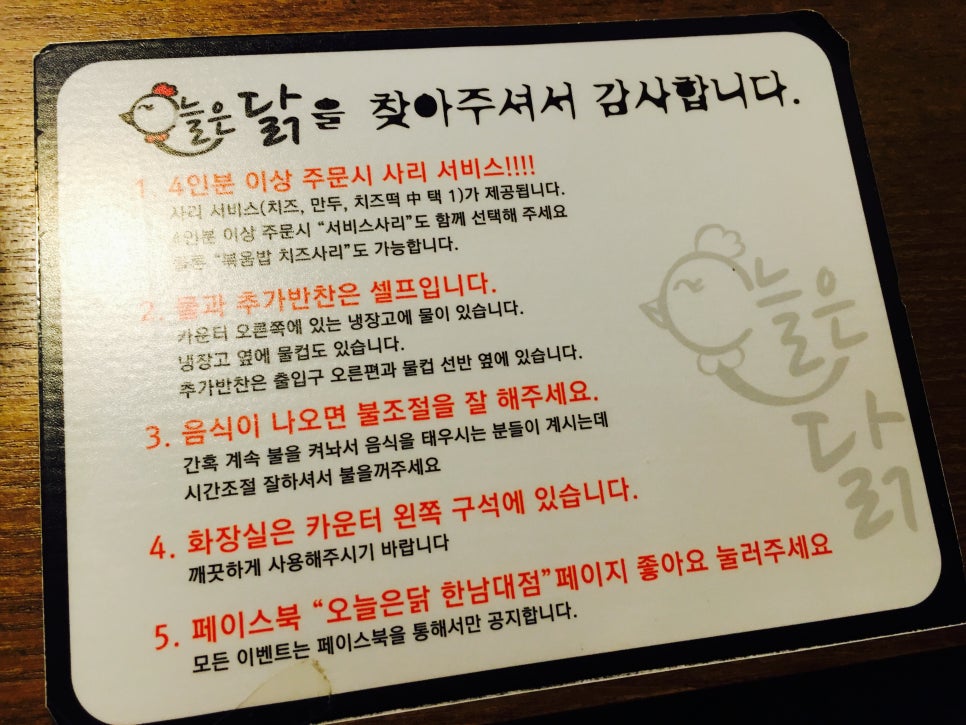 오늘은 닭을 찾아주셔서 감사합니다.
1. 4인분 이상 주문시 사리 서비스!!!!
사리 서비스(치즈, 만두, 치즈떡 中 택 1)가 제공됩니다.
4인분 이상 주문시 “서비스사리”도 함께 선택해 주세요
물론 “볶음밥 치즈사리”도 가능합니다.
2. 물과 추가반찬은 셀프입니다.
카운터 오른쪽에 있는 냉장고에 물이 있습니다.
냉장고 옆에 물컵도 있습니다.
추가반찬은 출입구 오른편과 물컵 선반 옆에 있습니다.
3. 음식이 나오면 불조절을 잘 해주세요.
간혹 계속 불을 켜놔서 음식을 태우시는 분들이 계시는데
시간조절 잘하셔서 불을꺼주세요
4. 화장실은 카운터 왼쪽 구석에 있습니다.
깨끗하게 사용해주시기 바랍니다
5. 페이스북 “오늘은닭 한남대점”페이지 좋아요 눌러주세요
모든 이벤트는 페이스북을 통해서만 공지합니다.
오늘은
닭